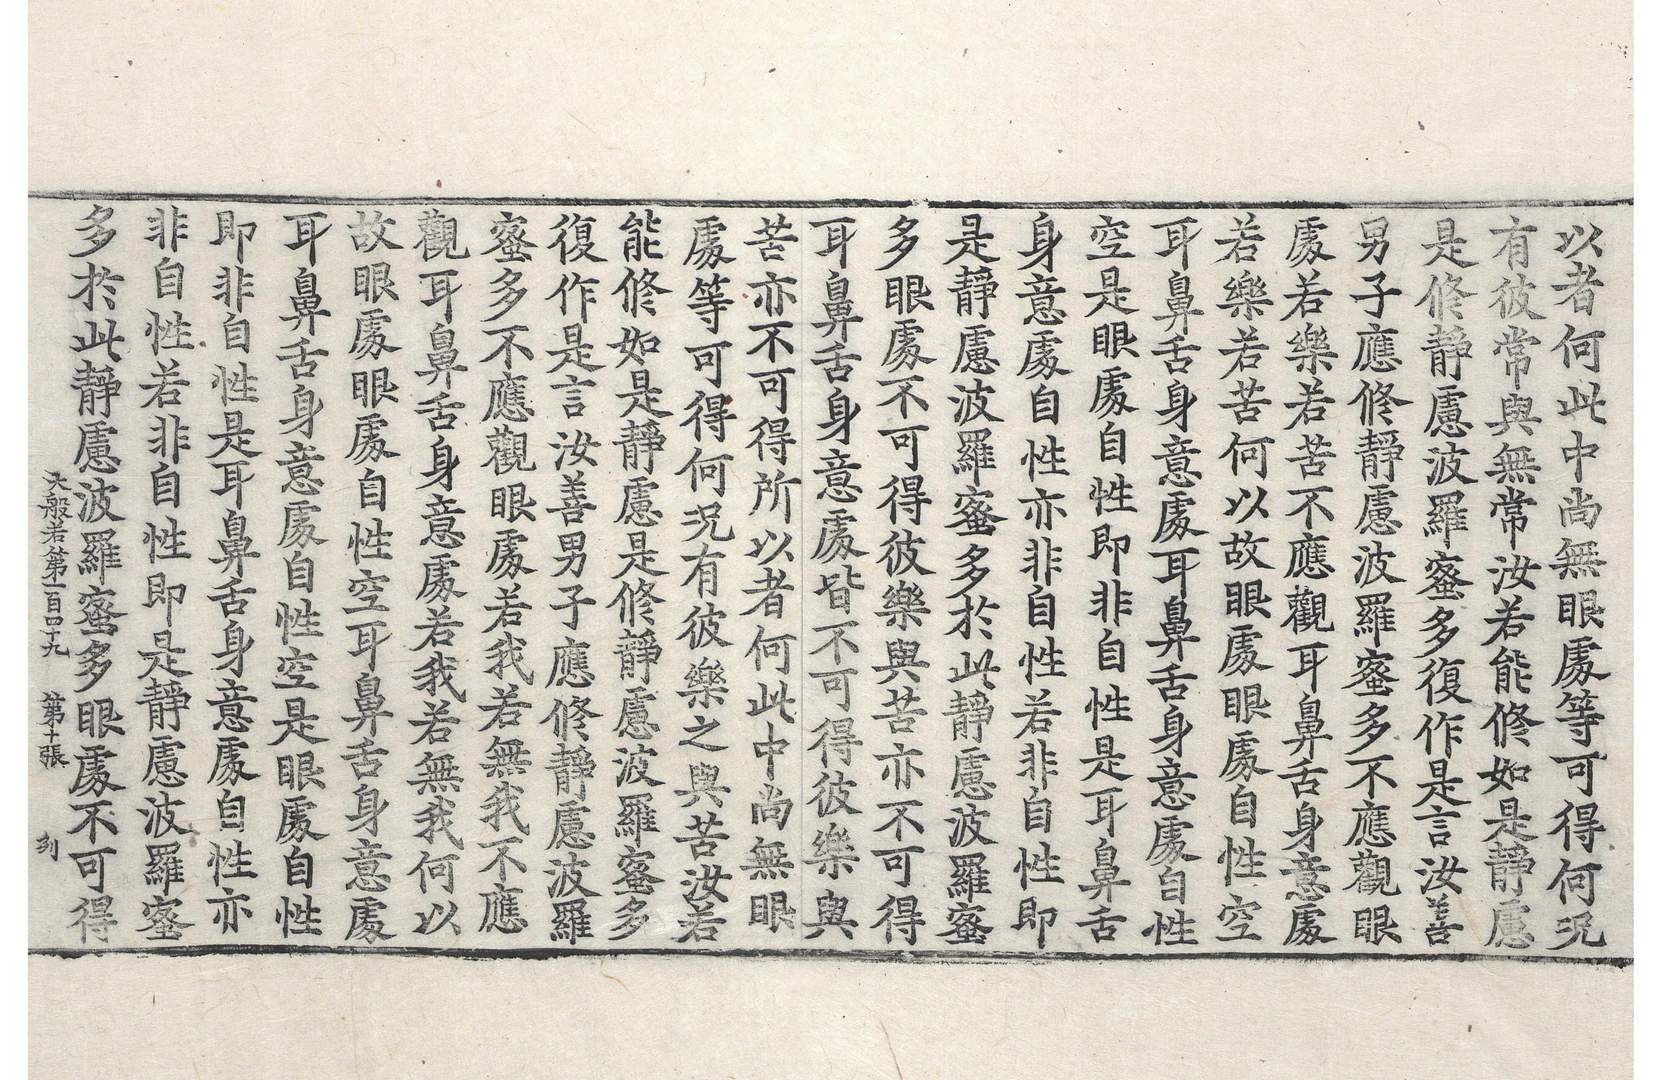 以者何此中尚無眼處等可得何況
有彼常與無常汝若能修如是靜慮
是修靜慮波羅蜜多復作是言汝善
男子應修靜慮波羅蜜多不應觀眼
處若樂若苦不應觀耳鼻舌身意處
若樂若苦何以故眼處眼處自性空
耳鼻舌身意處耳鼻舌身意處自性
空是眼處自性即非自性是耳鼻舌
身意處自性亦非自性若非自性即
是靜慮波羅蜜多於此靜慮波羅蜜
多眼處不可得彼樂與苦亦不可得
耳鼻舌身意處皆不可得彼樂與
苦亦不可得所以者何此中尚無眼
處等可得何況有彼樂之與苦汝若
能修如是靜慮是修靜慮波羅蜜多
復作是言汝善男子應修靜慮波羅
蜜多不應觀眼處若我若無我不應
觀耳鼻舌身意處若我若無我何以
故眼處眼處自性空耳鼻舌身意處
耳鼻舌身意處自性空是眼處自性
即非自性是耳鼻舌身意處自性亦
非自性若非自性即是靜慮波羅蜜
多於此靜慮波羅蜜多眼處不可得
大般若第一百四十九 第十張 列